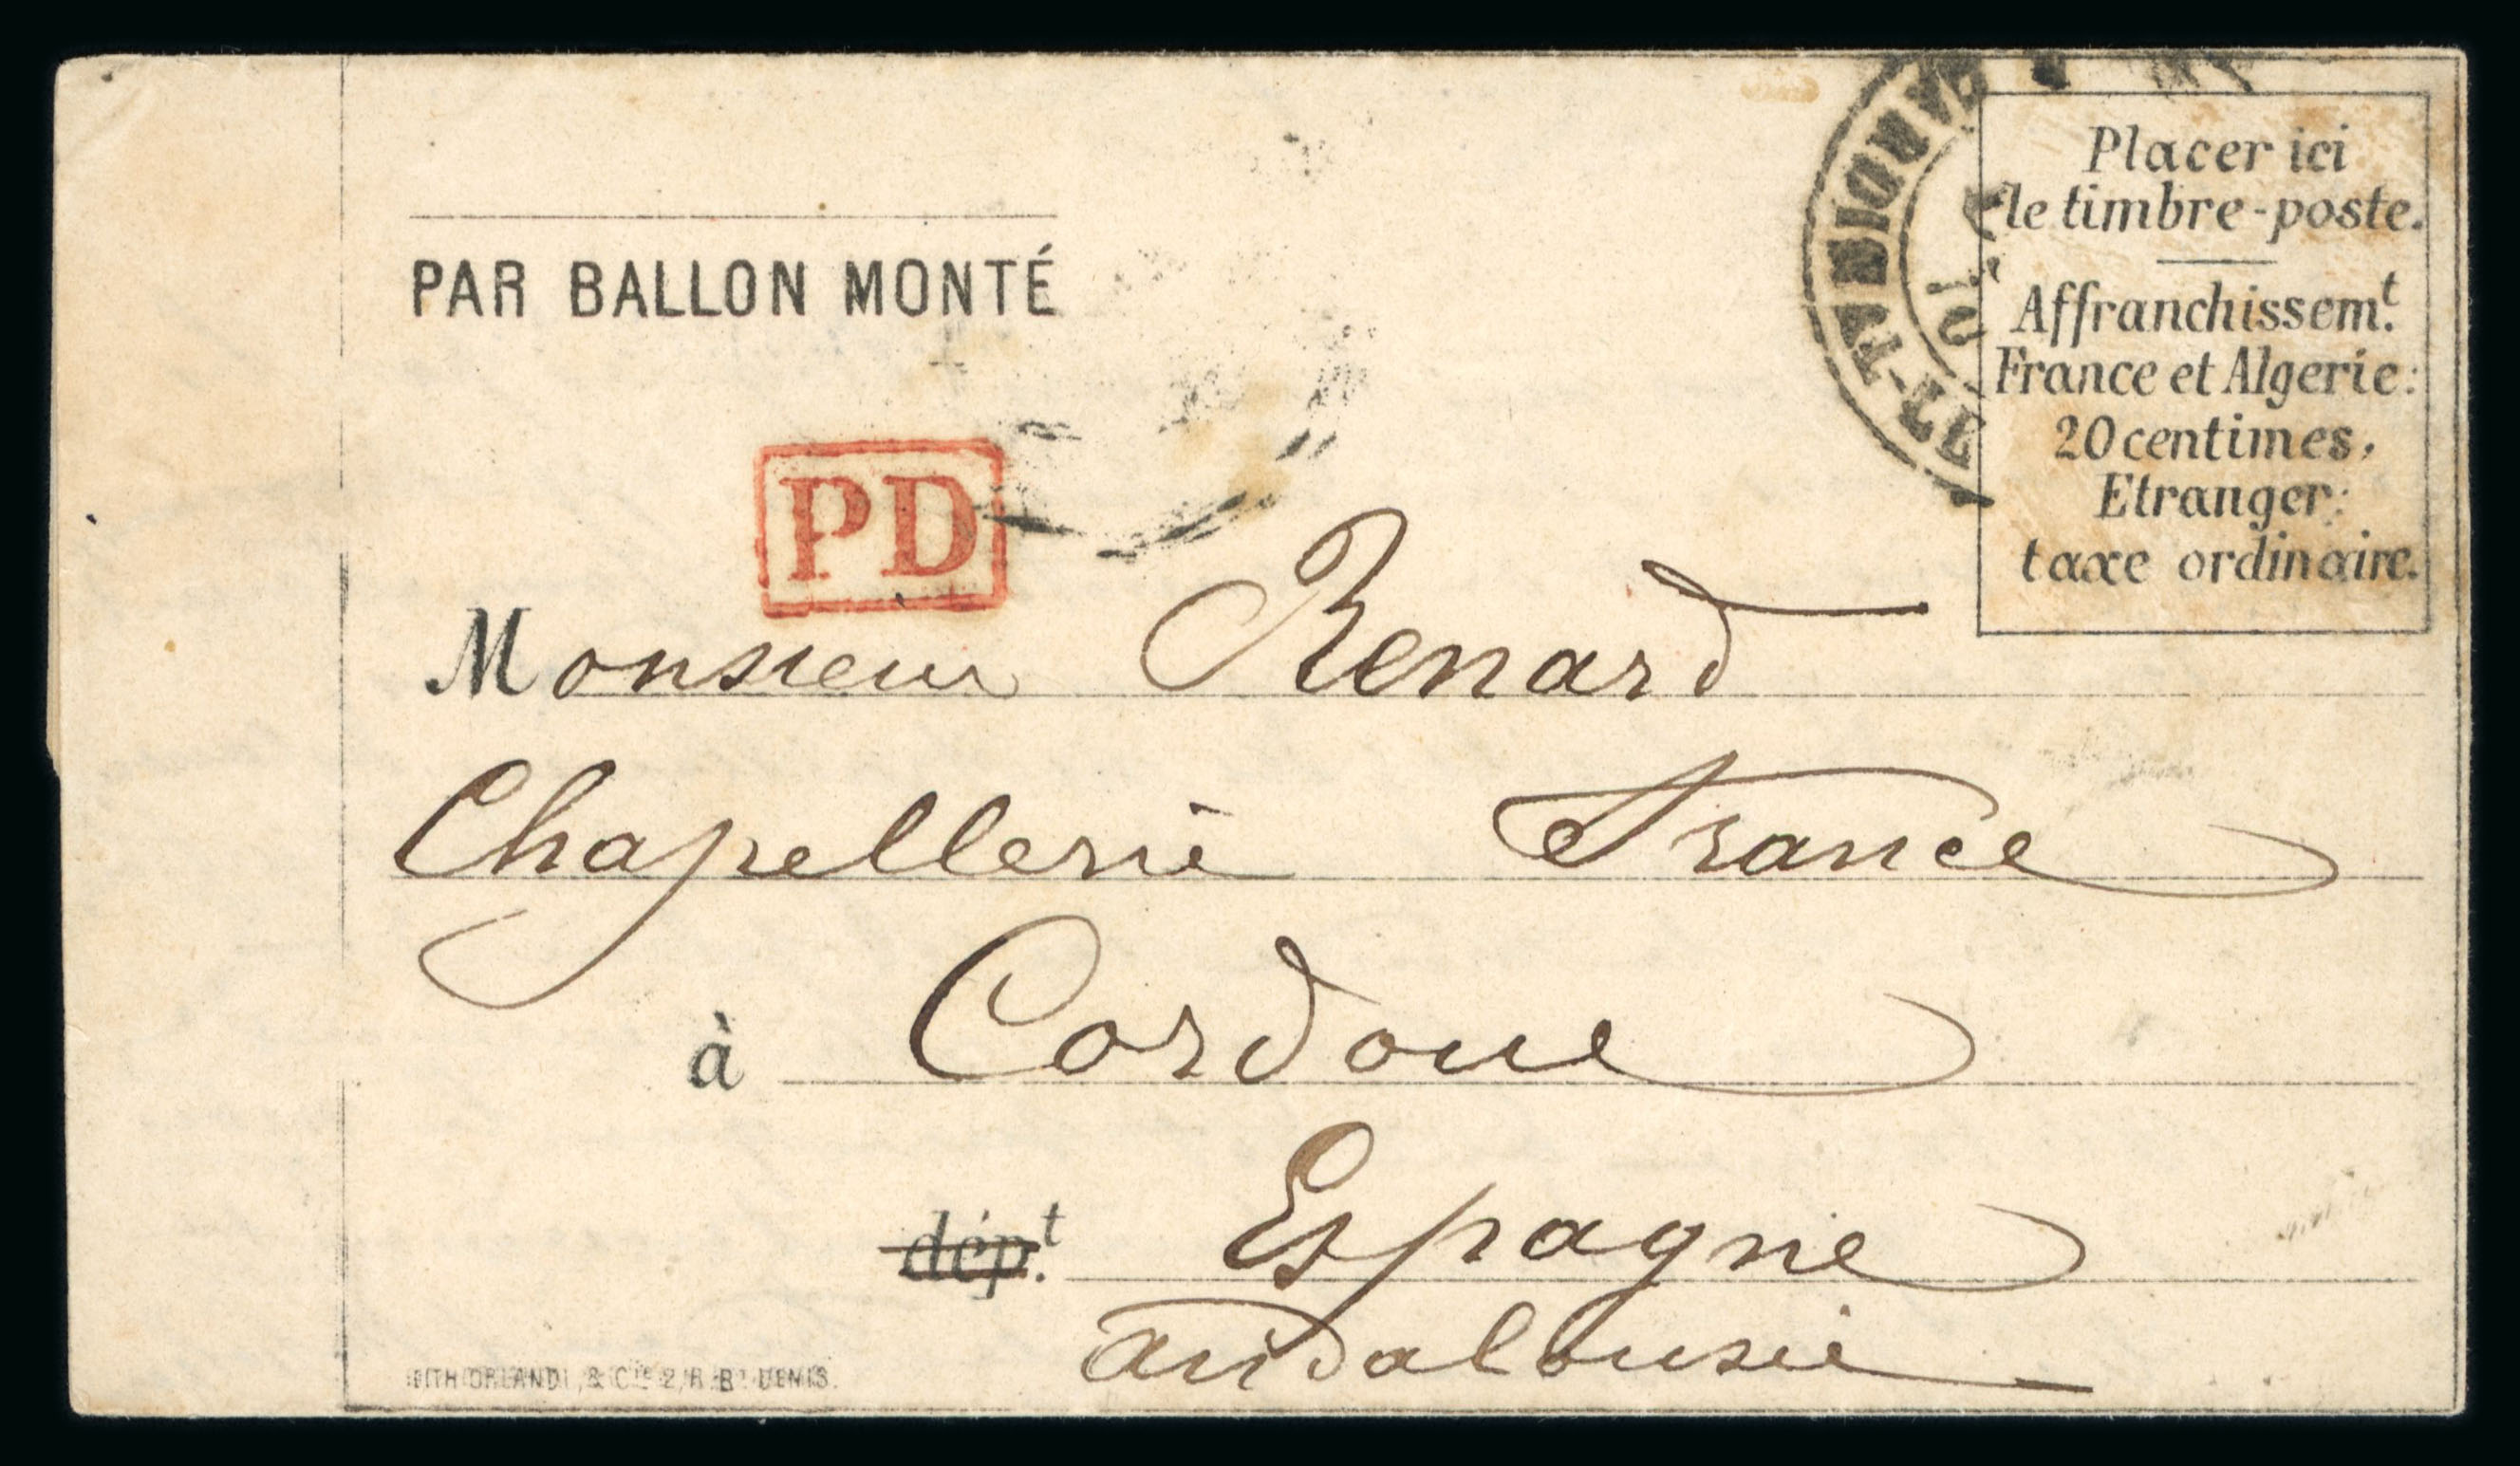 PAR BALLON MONTÉ
Placer ici
le timbre-poste.
Affranchissem.t
France et Algerie:
20 centimes,
Etranger:
taxe ordinaire.
PD
Monsieur Renard
Chapellerie France
à Cordoue
dép.t Espagne
Andalousie